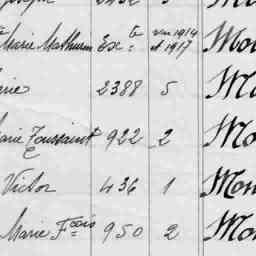 Marie Mathurin Exte vu 1914 Mo
et 1917
Marie 2388 5 Mo
Marie Toussaint 922 2 Mo
Victor 436 1 Mon
Marie Fçois 950 2 Mo